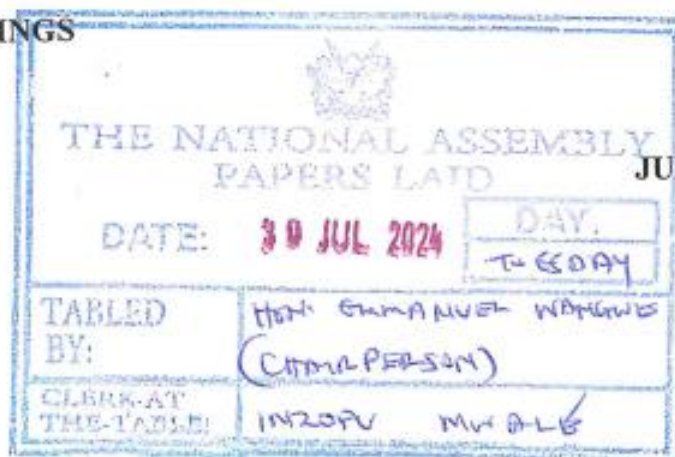 INGS
THE NATIONAL ASSEMBLY
PAPERS LAID
JU
DATE: 30 JUL 2024
DAY.
TUESDAY
TABLED BY:
HON. EMMANUEL WANGWE
(CHAIRPERSON)
CLERK-AT THE-TABLE:
INZOFU MWALE